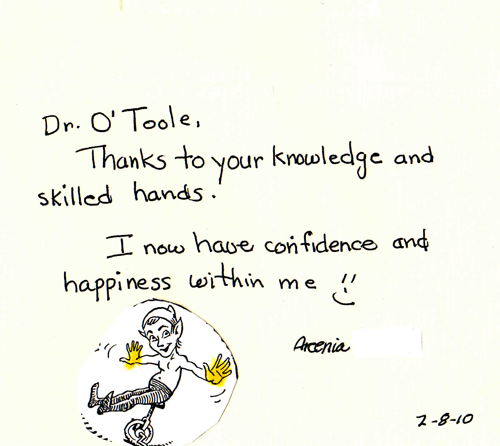 Dr. O'Toole,
Thanks to your knowledge and
skilled hands.
I now have confidence and
happiness within me
Arcenia
2-8-10